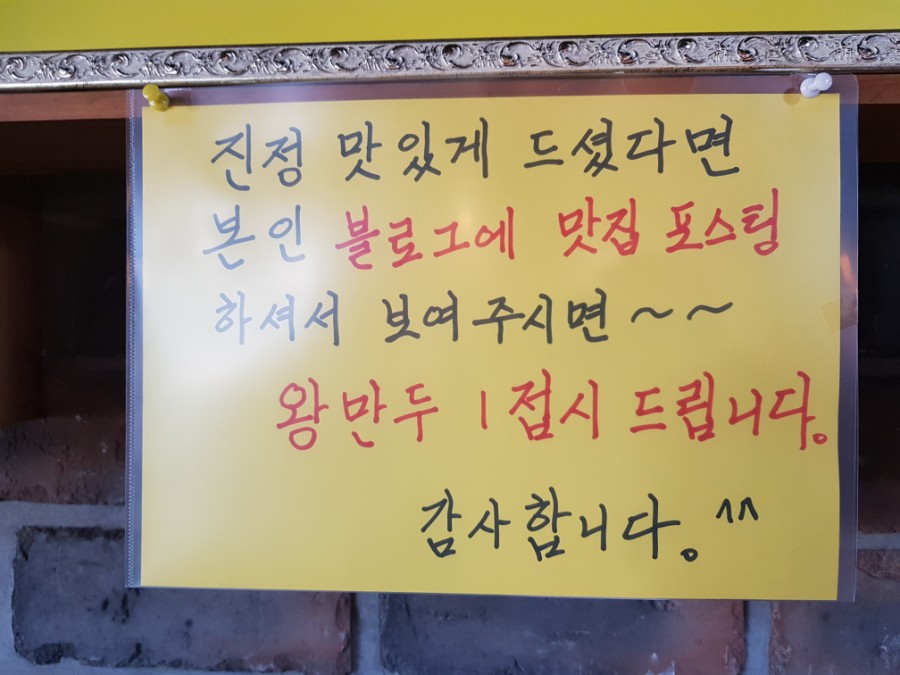 진정 맛있게 드셨다면
본인 블로그에 맛집 포스팅
하셔서 보여주시면~~
왕만두 1접시 드립니다.
감사합니다. ^^